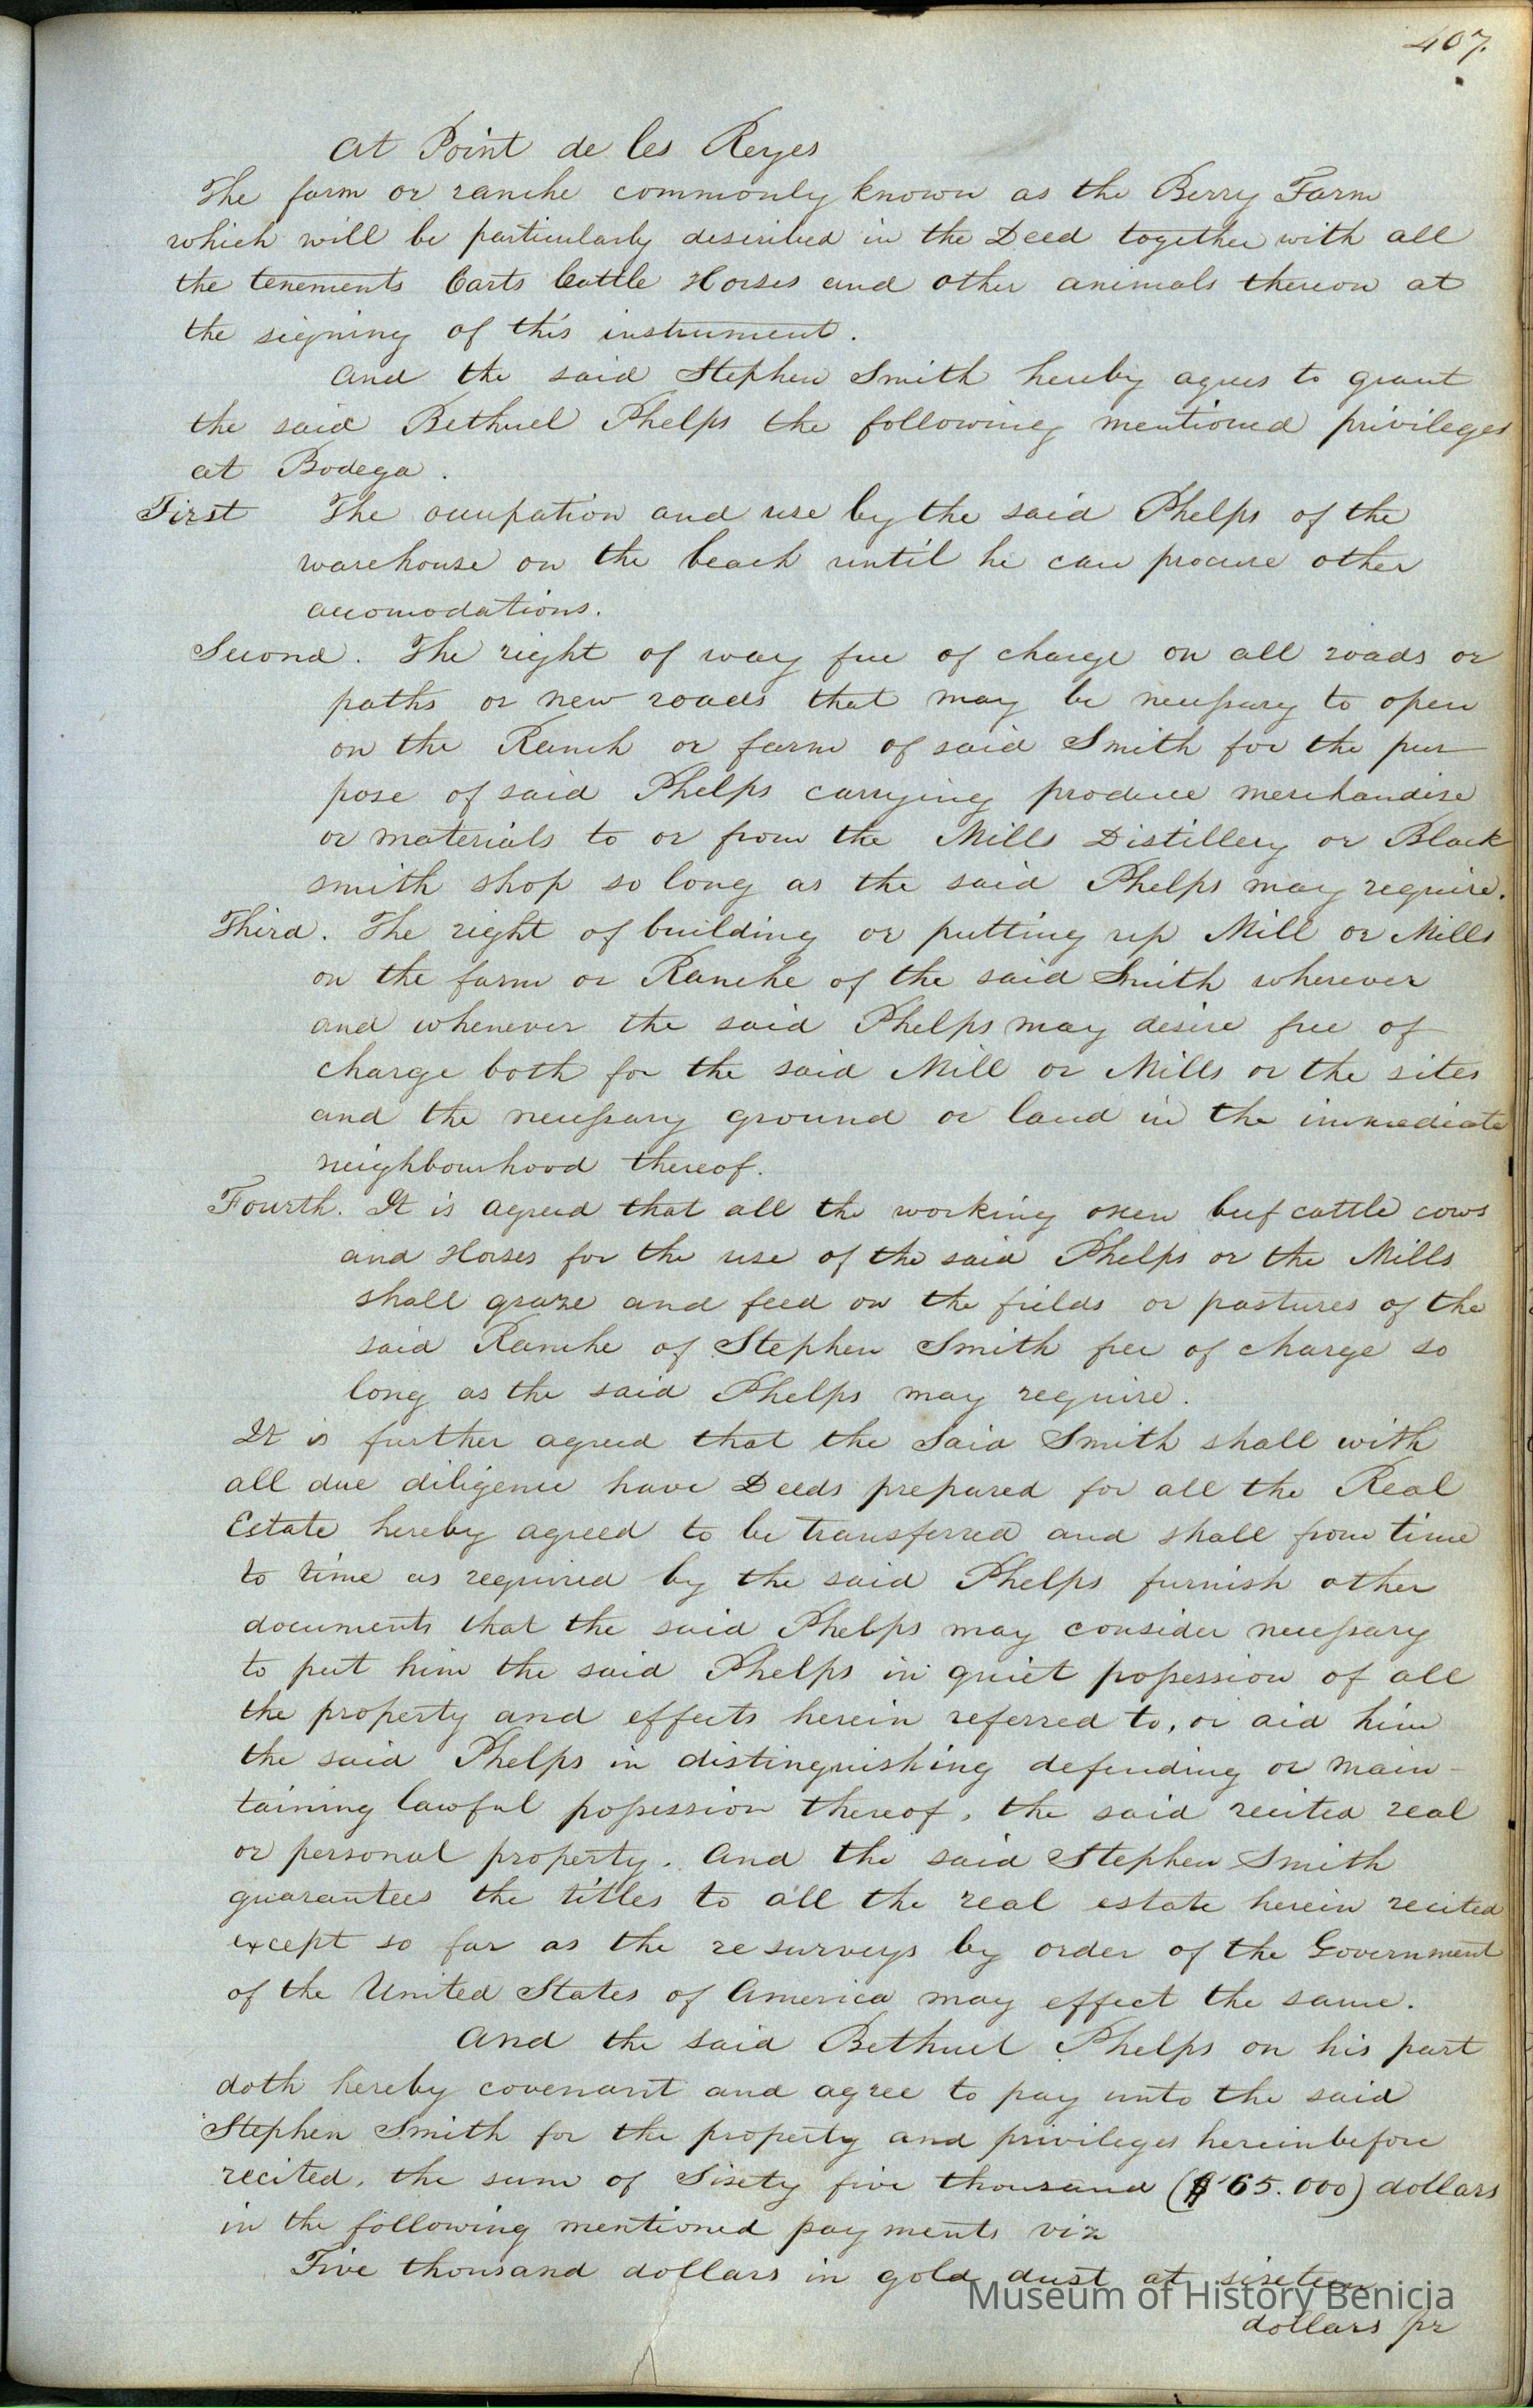 407.
At Point de les Reyes
The farm or ranche commonly known as the Berry Farm
which will be particularly described in the Deed together with all
the tenements Carts Cattle Horses and other animals thereon at
the signing of this instrument.
And the said Stephen Smith hereby agrees to grant
the said Bethuel Phelps the following mentioned privileges
at Bodega.
First The occupation and use by the said Phelps of the
warehouse on the beach until he can procure other
accomodations.
Second. The right of way free of charge on all roads or
paths or new roads that may be necessary to open
on the Ranch or farm of said Smith for the pur
pose of said Phelps carrying produce merchandise
or materials to or from the Mills Distillery or Black
smith shop so long as the said Phelps may require.
Third. The right of building or putting up Mill or Mills
on the farm or Ranche of the said Smith wherever
and whenever the said Phelps may desire free of
charge both for the said Mill or Mills or the sites
and the necessary ground or land in the immediate
neighbourhood thereof.
Fourth. It is agreed that all the working oxen beef cattle cows
and Horses for the use of the said Phelps or the Mills
shall graze and feed on the fields or pastures of the
said Ranche of Stephen Smith free of charge so
long as the said Phelps may require.
It is further agreed that the Said Smith shall with
all due diligence have Deeds prepared for all the Real
Estate hereby agreed to be transferred and shall from time
to time as required by the said Phelps furnish other
documents that the said Phelps may consider necessary
to put him the said Phelps in quiet possession of all
the property and effects herein referred to, or aid him
the said Phelps in distinguishing defending or main-
taining lawful possession thereof, the said recited real
or personal property. And the said Stephen Smith
guarantees the titles to all the real estate herein recited
except so far as the resurveys by order of the Government
of the United States of America may effect the same.
And the said Bethuel Phelps on his part
doth hereby covenant and agree to pay unto the said
Stephen Smith for the property and privileges hereinbefore
recited, the sum of Sixty five thousand ($65.000) dollars
in the following mentioned payments viz
Five thousand dollars in gold dust at sixteen
dollars pr
Museum of History Benicia